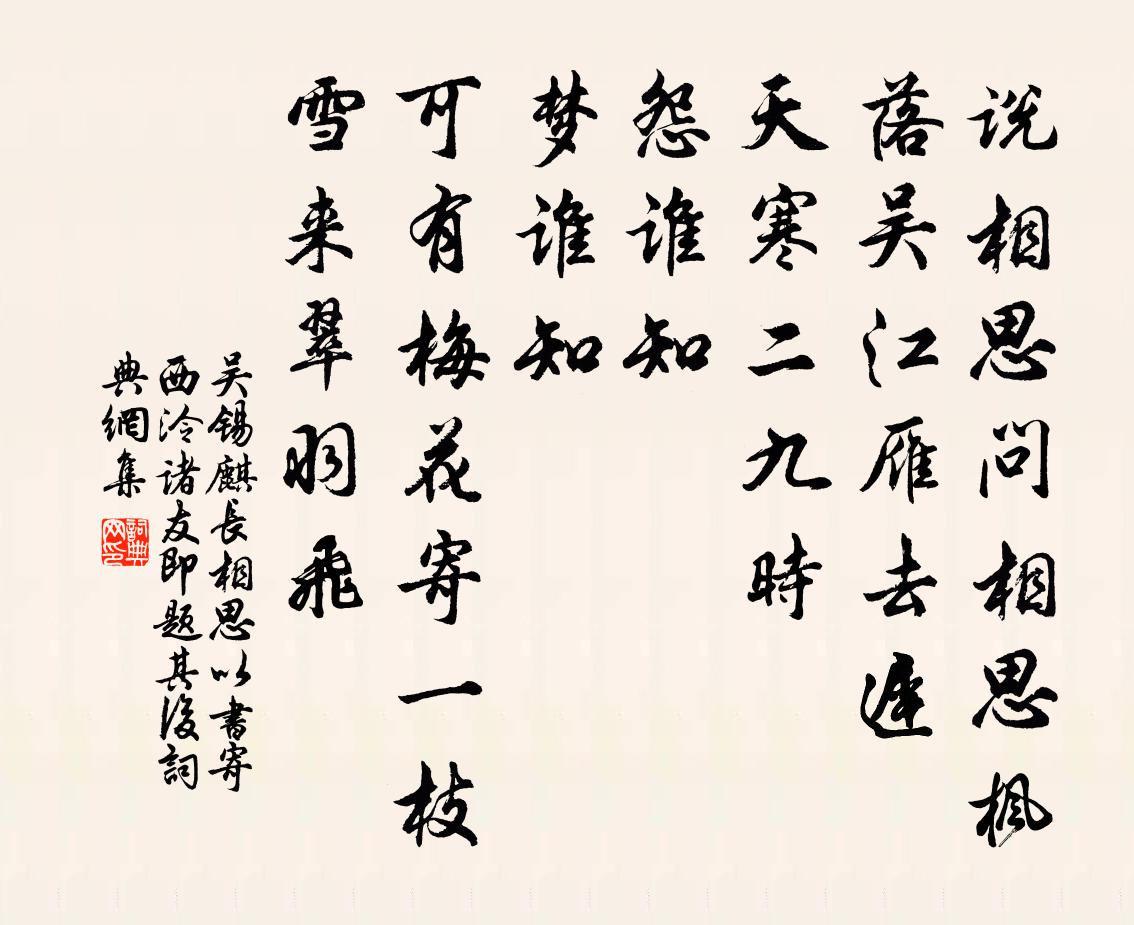 说相思问相思枫
落吴江雁去遲
天寒二九時
怨谁知
梦谁知
可有梅花寄一枝
雪来翠羽飛
吴锡麒長相思以書寄
西泠诸友即题其後詞
典網集
詞典網印